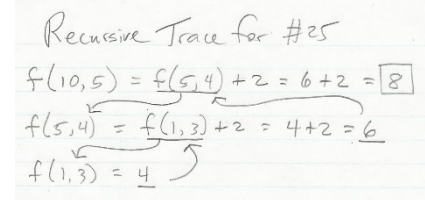 Recursive Trace for #25
f(10,5) = f(5,4) + 2 = 6 + 2 = 8
f(5,4) = f(1,3) + 2 = 4 + 2 = 6
f(1,3) = 4